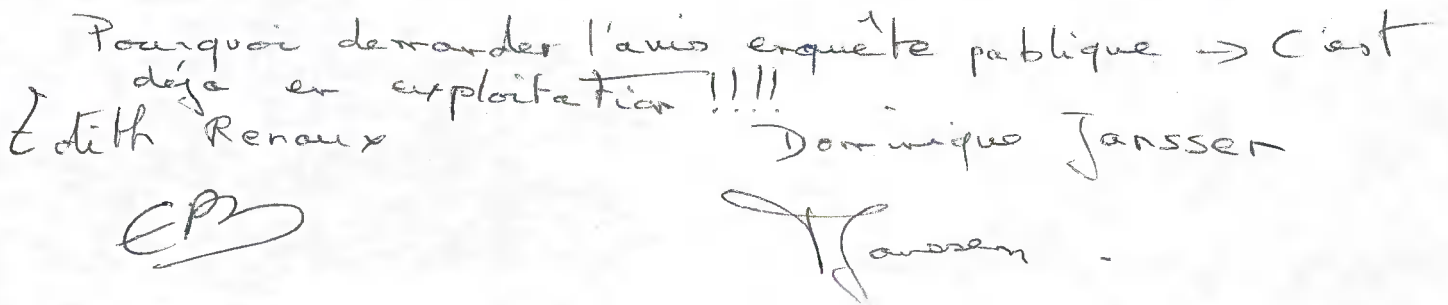 Pourquoi demander l'avis enquête publique → C'est
déjà en exploitation !!!!
Edith Renoux Dominique Janssen
Janssen